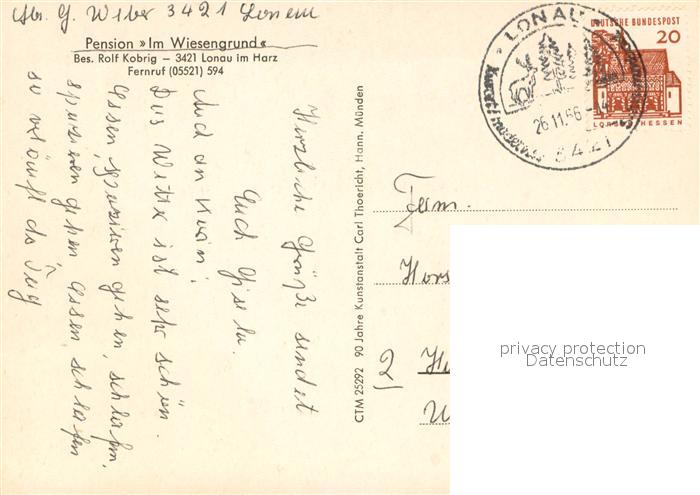 Abs. G. Weber 3421 Lonau
Pension »Im Wiesengrund«
Bes. Rolf Kobrig – 3421 Lonau im Harz
Fernruf (05521) 594
Herzliche Grüße sendet
Euch Gisela.
Auch an Karin!
Das Wetter ist sehr schön.
Essen, spazieren gehen, schlafen,
spazieren gehen, essen, schlafen
so verläuft der Tag
CTM 25292 90 Jahre Kunstanstalt Carl Thoericht, Hann. Münden
LONAU
26.11.66
3421
DEUTSCHE BUNDESPOST
20
LORSCH HESSEN
Fam.
Hors
2
privacy protection
Datenschutz